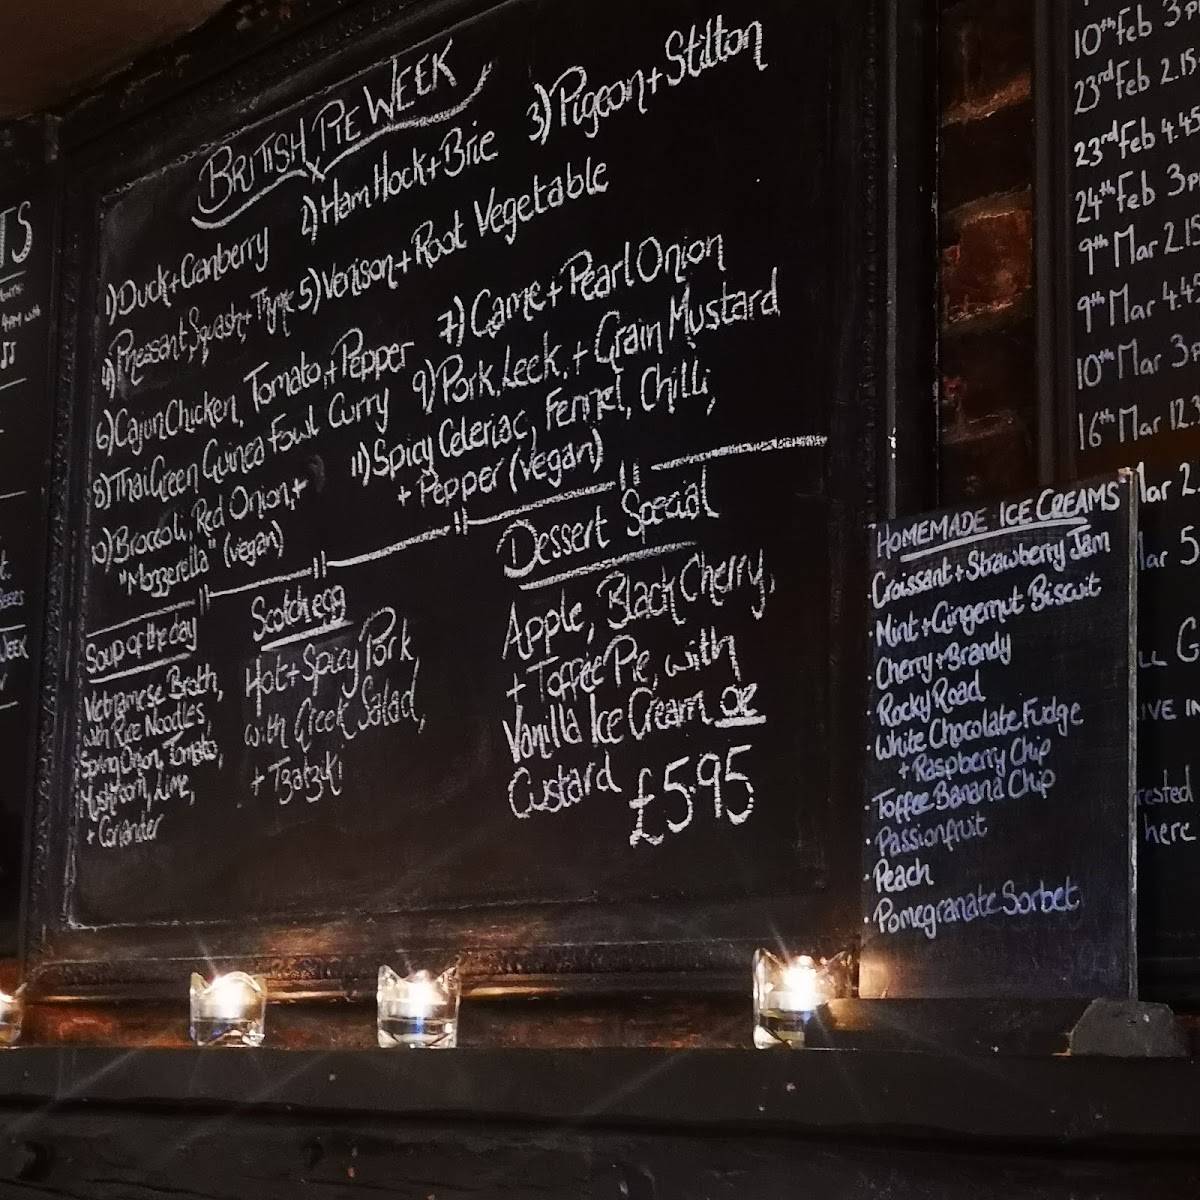 BRITISH PIE WEEK
1) Duck + Cranberry
2) Ham Hock + Brie
3) Pigeon + Stilton
4) Pheasant, Squash, + Thyme
5) Venison + Root Vegetable
6) Cajun Chicken, Tomato, + Pepper
7) Game + Pearl Onion
8) Thai Green Guinea Fowl Curry
9) Pork, Leek, + Grain Mustard
10) Broccoli, Red Onion, +
"Mozzerella" (vegan)
11) Spicy Celeriac, Fennel, Chilli,
+ Pepper (vegan)
Soup of the day
Vietnamese Broth,
with Rice Noodles,
Spring Onion, Tomato,
Mushroom, Lime,
+ Coriander
Scotch egg
Hot + Spicy Pork,
with Greek Salad,
+ Tzatziki
Dessert Special
Apple, Black Cherry,
+ Toffee Pie, with
Vanilla Ice Cream or
Custard £5.95
HOMEMADE ICE CREAMS
· Croissant + Strawberry Jam
· Mint + Gingernut Biscuit
· Cherry + Brandy
· Rocky Road
· White Chocolate Fudge
+ Raspberry Chip
· Toffee Banana Chip
· Passionfruit
· Peach
· Pomegranate Sorbet
10th Feb 3p
23rd Feb 2.15
23rd Feb 4.45
24th Feb 3p
9th Mar 2.15
9th Mar 4.4
10th Mar 3p
16th Mar 12.3
Mar 2
ar 5
LL G
IVE IN
rested
here
TS
4PM with
EEK